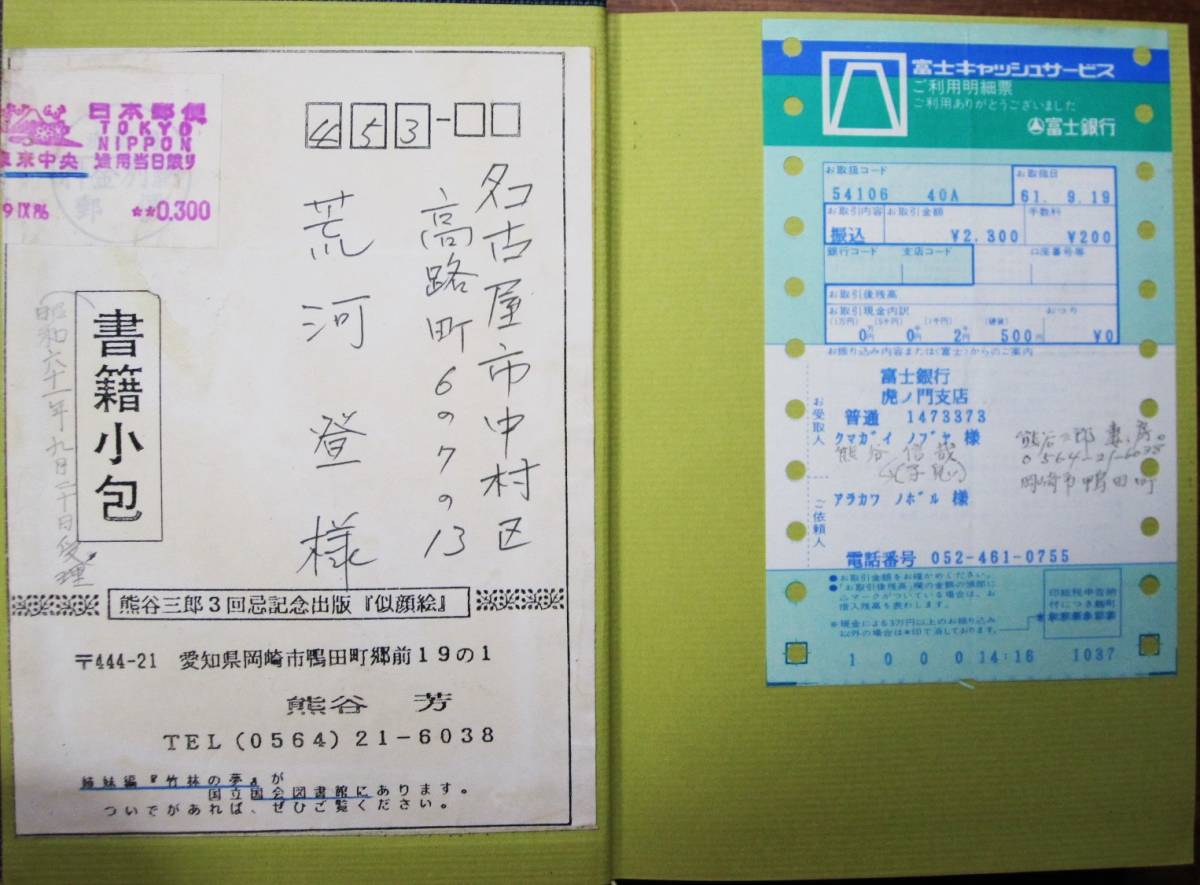 日本郵便
TOKYO
NIPPON
東京中央 通用当日限り
9 IX 86 **0.300
453-
名古屋市中村区
高路町6の7の13
荒河 登 様
書籍小包
昭和六十一年九月二十日受理
熊谷三郎3回忌記念出版『似顔絵』
〒444-21 愛知県岡崎市鴨田町郷前19の1
熊谷 芳
TEL(0564)21-6038
姉妹編『竹林の夢』が
国立国会図書館にあります。
ついでがあれば、ぜひご覧ください。
富士キャッシュサービス
ご利用明細票
ご利用ありがとうございました
富士銀行
お取扱コード お取扱日
54106 40A 61. 9.19
お取引内容 お取引金額 手数料
振込 ¥2,300 ¥200
銀行コード 支店コード 口座番号等
お取引後残高
お取引現金内訳 おつり
(1万円) (5千円) (1千円) (硬貨)
0 0 2 500円 ¥0
お振り込み内容または〈富士〉からのご案内
お受取人
富士銀行
虎ノ門支店
普通 1473373
クマガイ ノブヤ 様
熊谷 信哉
熊谷三郎 妻 芳。
0564-21-6038
岡崎市鴨田町
ご依頼人
アラカワ ノボル 様
電話番号 052-461-0755
●お取引金額をお確かめください。
●「お取引後残高」欄の金額の頭部に
マークがついている場合は、お
借入残高を表わします。
※現金による3万円以上のお振り込み
以外の場合は※印で消しております。
印紙税申告納
付につき麹町
1 0 0 0 14:16 1037